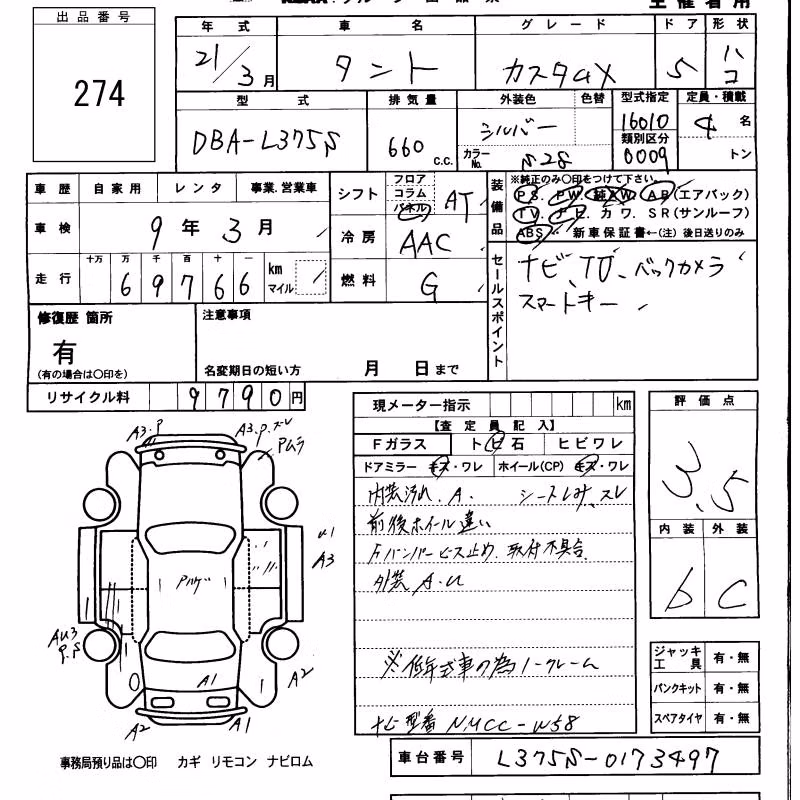 出品番号
274
年式 車名 グレード ドア 形状
21/3月 タント カスタムX 5 ハコ
型式 排気量 外装色 色替 型式指定 定員・積載
DBA-L375S 660 C.C. シルバー 16010 4名
カラーNo. S28 類別区分 0009 トン
車歴 自家用 レンタ 事業.営業車
シフト フロア コラム パネル AT
装備品 ※純正のみ〇印をつけて下さい。
PS. PW. 純AW. AB(エアバック)
TV. ナビ. カワ. SR(サンルーフ)
ABS 新車保証書←(注) 後日送りのみ
車検 9年3月
冷房 AAC
走行 十万 万 千 百 十 一
69766 km マイル
燃料 G
セールスポイント
ナビ、TV、バックカメラ
スマートキー
修復歴 箇所
有
(有の場合は〇印を)
注意事項
名変期日の短い方 月 日まで
リサイクル料 9790円
現メーター指示 km
【査定員記入】
Fガラス トビ石 ヒビワレ
ドアミラー キズ・ワレ ホイール(CP) キズ・ワレ
内装汚れ.A. シートしみ、スレ
前後ホイール違い
Fバンパービス止め.取付不具合
外装A.U
※低年式車の為ノークレーム
ナビ型番 NMCC-W58
評価点
3.5
内装 外装
b C
ジャッキ工具 有・無
パンクキット 有・無
スペアタイヤ 有・無
A3.P A3.P.スレ
Pムラ
U1
A3
AU3
P.S
A2
A1
A2 A1
事務局預り品は〇印 カギ リモコン ナビロム
車台番号 L375S-0173497